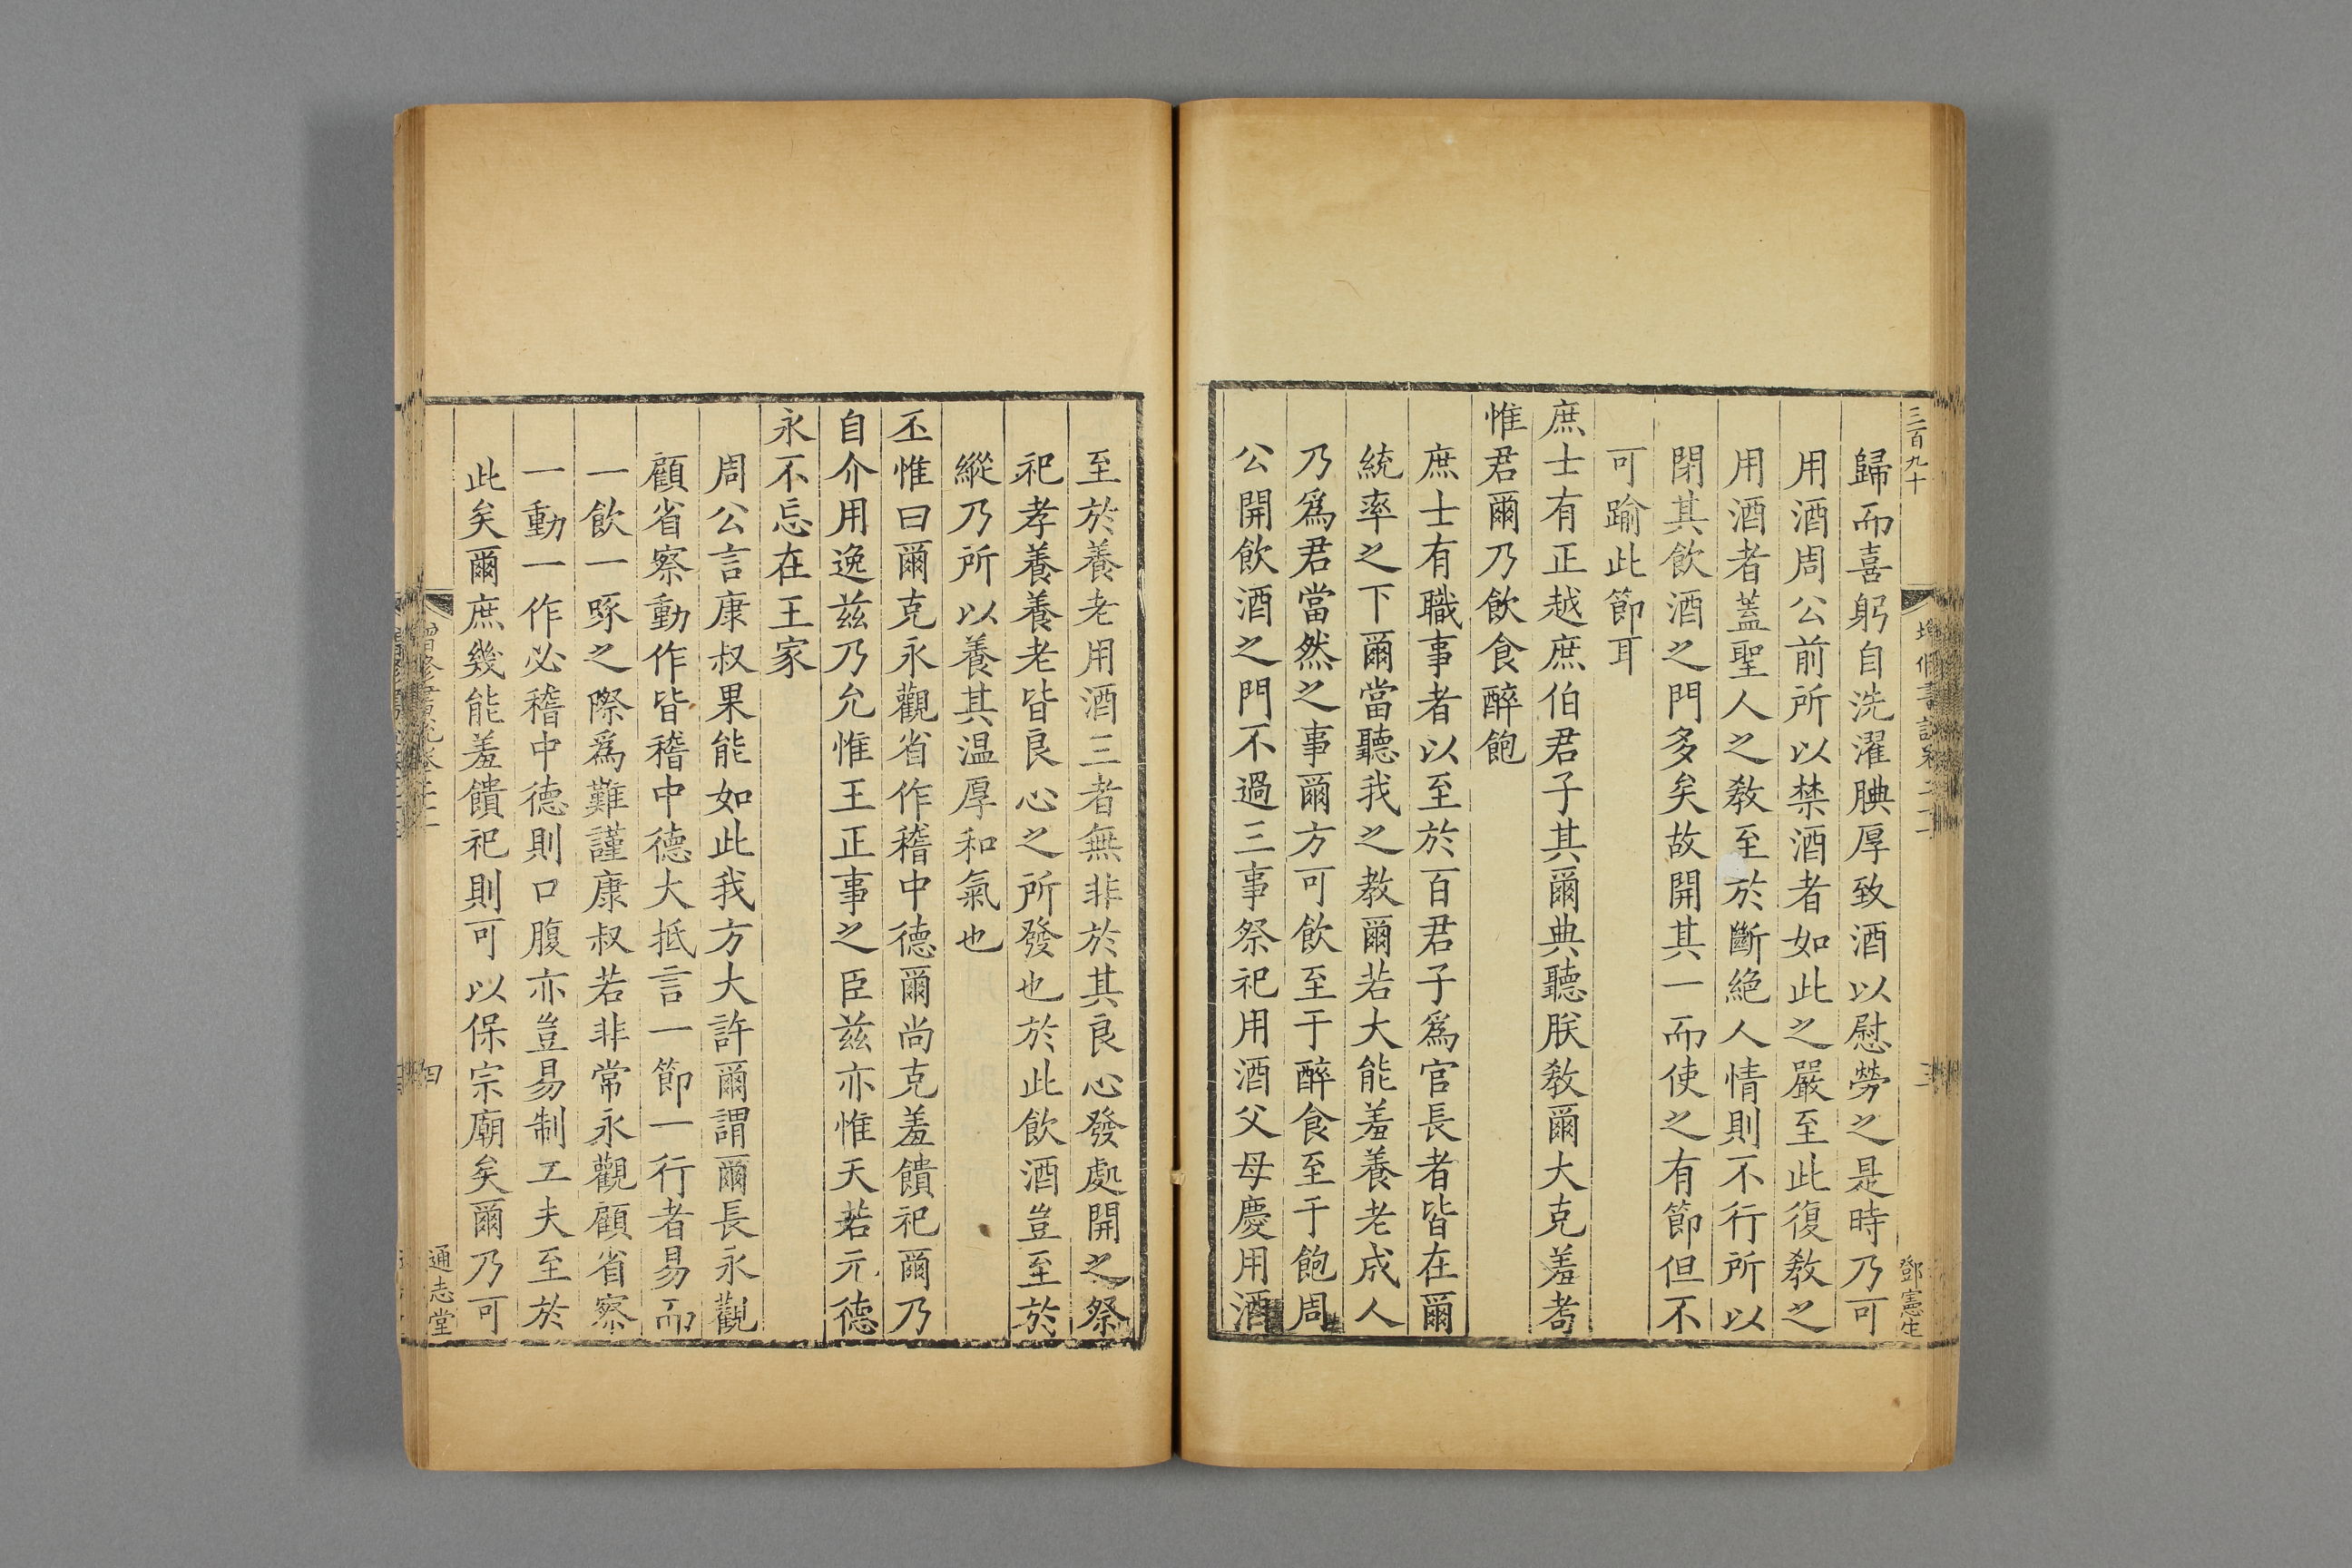 三百九十
鄧憲生
歸而喜躬自洗濯腆厚致酒以慰勞之是時乃可
用酒周公前所以禁酒者如此之嚴至此復敎之
用酒者蓋聖人之敎至於斷絶人情則不行所以
閉其飲酒之門多矣故開其一而使之有節但不
可踰此節耳
庶士有正越庶伯君子其爾典聽朕敎爾大克羞耇
惟君爾乃飲食醉飽
庶士有職事者以至於百君子爲官長者皆在爾
統率之下爾當聽我之教爾若大能羞養老成人
乃爲君當然之事爾方可飲至于醉食至于飽周
公開飲酒之門不過三事祭祀用酒父母慶用酒
至於養老用酒三者無非於其良心發處開之祭
祀孝養養老皆良心之所發也於此飲酒豈至於
縱乃所以養其温厚和氣也
丕惟曰爾克永觀省作稽中德爾尚克羞饋祀爾乃
自介用逸兹乃允惟王正事之臣兹亦惟天若元德
永不忘在王家
周公言康叔果能如此我方大許爾謂爾長永觀
顧省察動作皆稽中德大抵言一節一行者易而
一飲一啄之際爲難謹康叔若非常永觀顧省察
一動一作必稽中德則口腹亦豈易制工夫至於
此矣爾庶幾能羞饋祀則可以保宗廟矣爾乃可
四
通志堂